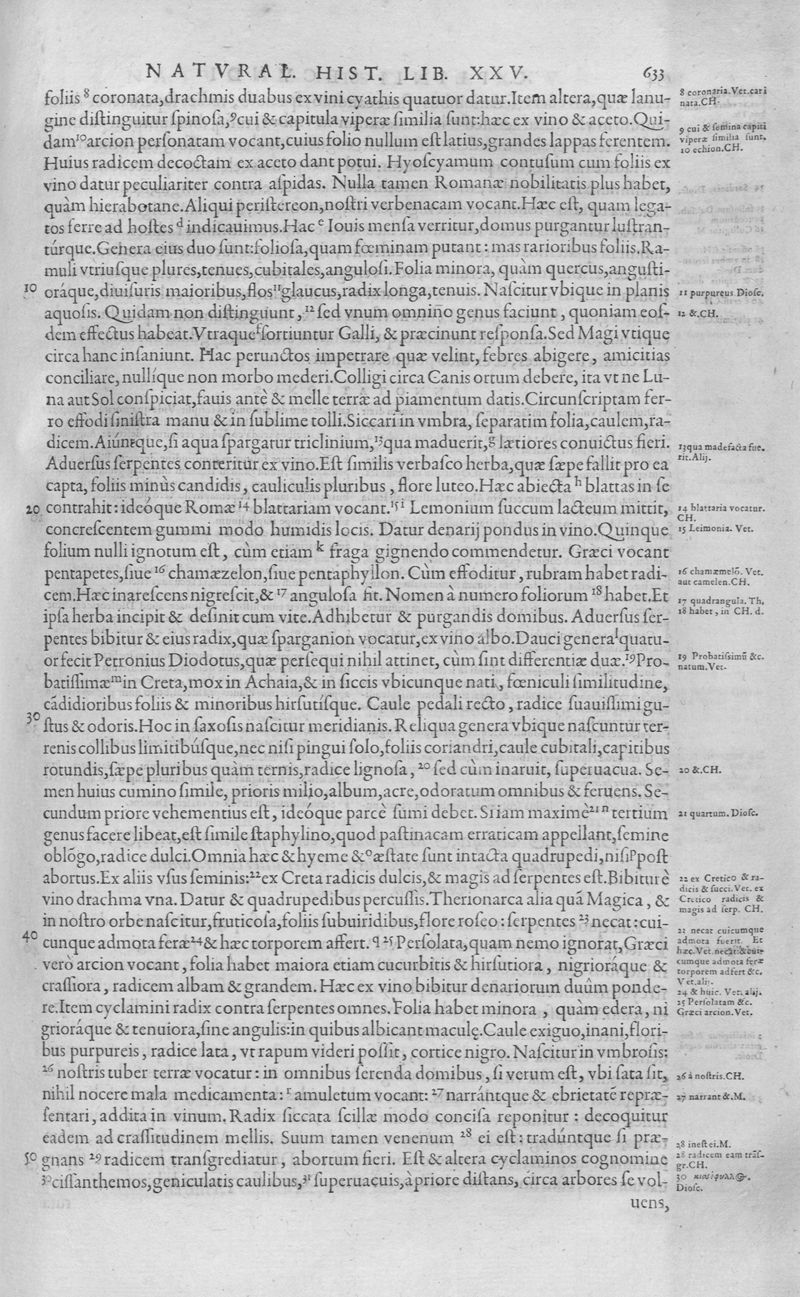 NATVRAL. HIST. LIB. XXV. 633
foliis ⁸ coronata,drachmis duabus ex vini cyathis quatuor datur.Item altera,quæ lanu-
gine distinguitur spinosa,⁹cui & capitula viperæ similia sunt:hæc ex vino & aceto.Qui-
dam¹⁰arcion personatam vocant,cuius folio nullum est latius,grandes lappas ferentem.
Huius radicem decoctam ex aceto dant potui. Hyoscyamum contusum cum foliis ex
vino datur peculiariter contra aspidas. Nulla tamen Romanæ nobilitatis plus habet,
quàm hierabotane.Aliqui peristereon,nostri verbenacam vocant.Hæc est, quam lega-
tos ferre ad hostes ᵈ indicauimus.Hac ᵉ Iouis mensa verritur,domus purgantur lustran-
túrque.Genera eius duo sunt:foliosa,quam fœminam putant : mas rarioribus foliis.Ra-
muli vtriusque plures,tenues,cubitales,angulosi.Folia minora, quàm quercus,angusti-
10 oráque,diuisuris maioribus,flos¹¹glaucus,radix longa,tenuis. Nascitur vbique in planis
aquosis. Quidam non distinguunt ,¹² sed vnum omnino genus faciunt , quoniam eos-
dem effectus habeat.Vtraqueᶠsortiuntur Galli, & præcinunt responsa.Sed Magi vtique
circa hanc insaniunt. Hac perunctos impetrare quæ velint, febres abigere, amicitias
conciliare, nullíque non morbo mederi.Colligi circa Canis ortum debere, ita vt ne Lu-
na aut Sol conspiciat,fauis antè & melle terræ ad piamentum datis.Circunscriptam fer-
ro effodi sinistra manu & in sublime tolli.Siccari in vmbra, separatim folia,caulem,ra-
dicem.Aiúntque,si aqua spargatur triclinium,¹³qua maduerit,ᵍ lætiores conuictus fieri.
Aduersus serpentes conteritur ex vino.Est similis verbasco herba,quæ sæpe fallit pro ea
capta, foliis minùs candidis , cauliculis pluribus , flore luteo.Hæc abiecta ʰ blattas in se
20 contrahit : ideóque Romæ ¹⁴ blattariam vocant.¹⁵ ⁱ Lemonium succum lacteum mittit,
concrescentem gummi modo humidis locis. Datur denarij pondus in vino.Quinque
folium nulli ignotum est , cùm etiam ᵏ fraga gignendo commendetur. Græci vocant
pentapetes,siue ¹⁶ chamæzelon,siue pentaphyllon. Cùm effoditur , rubram habet radi-
cem.Hæc inarescens nigrescit,& ¹⁷ angulosa fit. Nomen à numero foliorum ¹⁸ habet.Et
ipsa herba incipit & desinit cum vite.Adhibetur & purgandis domibus. Aduersus ser-
pentes bibitur & eius radix,quæ sparganion vocatur,ex vino albo.Dauci generaˡquatu-
or fecit Petronius Diodotus,quæ persequi nihil attinet, cùm sint differentiæ duæ.¹⁹Pro-
batissimæᵐin Creta,mox in Achaia,& in siccis vbicunque nati, fœniculi similitudine,
cādidioribus foliis & minoribus hirsutisque. Caule pedali recto , radice suauissimi gu-
30 stus & odoris.Hoc in saxosis nascitur meridianis. Reliqua genera vbique nascuntur ter-
renis collibus limitibúsque,nec nisi pingui solo,foliis coriandri,caule cubitali,capitibus
rotundis,sæpe pluribus quàm ternis,radice lignosa , ²⁰ sed cùm inaruit, superuacua. Se-
men huius cumino simile, prioris milio,album,acre,odoratum omnibus & feruens. Se-
cundum priore vehementius est , ideóque parcè sumi debet. Si iam maximè²¹ ⁿ tertium
genus facere libeat,est simile staphylino,quod pastinacam erraticam appellant,semine
oblōgo,radice dulci.Omnia hæc & hyeme &ᵒæstate sunt intacta quadrupedi,nisiᵖpost
abortus.Ex aliis vsus seminis:²²ex Creta radicis dulcis,& magis ad serpentes est.Bibitur è
vino drachma vna. Datur & quadrupedibus percussis.Therionarca alia quá Magica , &
in nostro orbe nascitur,fruticosa,foliis subuiridibus,flore roseo : serpentes ²³ necat : cui-
40 cunque admota feræ²⁴& hæc torporem affert. q ²⁵ Persolata,quam nemo ignorat,Græci
verò arcion vocant , folia habet maiora etiam cucurbitis & hirsutiora , nigrioráque &
crassiora , radicem albam & grandem. Hæc ex vino bibitur denariorum duûm ponde-
re.Item cyclamini radix contra serpentes omnes. Folia habet minora , quàm edera, ni
grioráque & tenuiora,sine angulis:in quibus albicant maculę.Caule exiguo,inani,flori-
bus purpureis , radice lata , vt rapum videri possit , cortice nigro. Nascitur in vmbrosis:
²⁶ nostris tuber terræ vocatur : in omnibus serenda domibus , si verum est, vbi sata sit,
nihil nocere mala medicamenta : ʳ amuletum vocant: ²⁷ narrántque & ebrietaté repræ-
sentari, addita in vinum. Radix siccata scillæ modo concisa reponitur : decoquitur
eadem ad crassitudinem mellis. Suum tamen venenum ²⁸ ei est : tradúntque si præ-
50 gnans ²⁹ radicem transgrediatur , abortum fieri. Est & altera cyclaminos cognomine
³⁰cissanthemos,geniculatis caulibus,³¹ superuacuis,à priore distans, circa arbores se vol-
uens,
8 coronaria.Vet.cari
nata.CH.
9 cui & semina capiti
viperæ similia sunt.
10 echion.CH.
11 purpureus Diosc.
12 &.CH.
13 qua madefacta fue.
rit.Alij.
14 blattaria vocatur.
CH.
15 Leimonia. Vet.
16 chamæmelō. Vet.
aut camelen.CH.
17 quadrangula. Th.
18 habet , in CH. d.
19 Probatissimū &c.
natum.Vet.
20 &.CH.
21 quartum. Diosc.
22 ex Cretico & ra-
dicis & succi.Vet. ex
Cretico radicis &
magis ad serp. CH.
22 necat cuicumque
admota fuerit. Et
hæc.Vet.necat:&cui-
cumque admota feræ
torporem adfert &c.
Vet.alij.
24 & huic. Vet. alij.
25 Persolatam &c.
Græci arcion.Vet.
26 à nostris.CH.
27 narrant &.M.
28 inest ei.M.
28 radicem eam trās-
gr.CH.
Diosc.